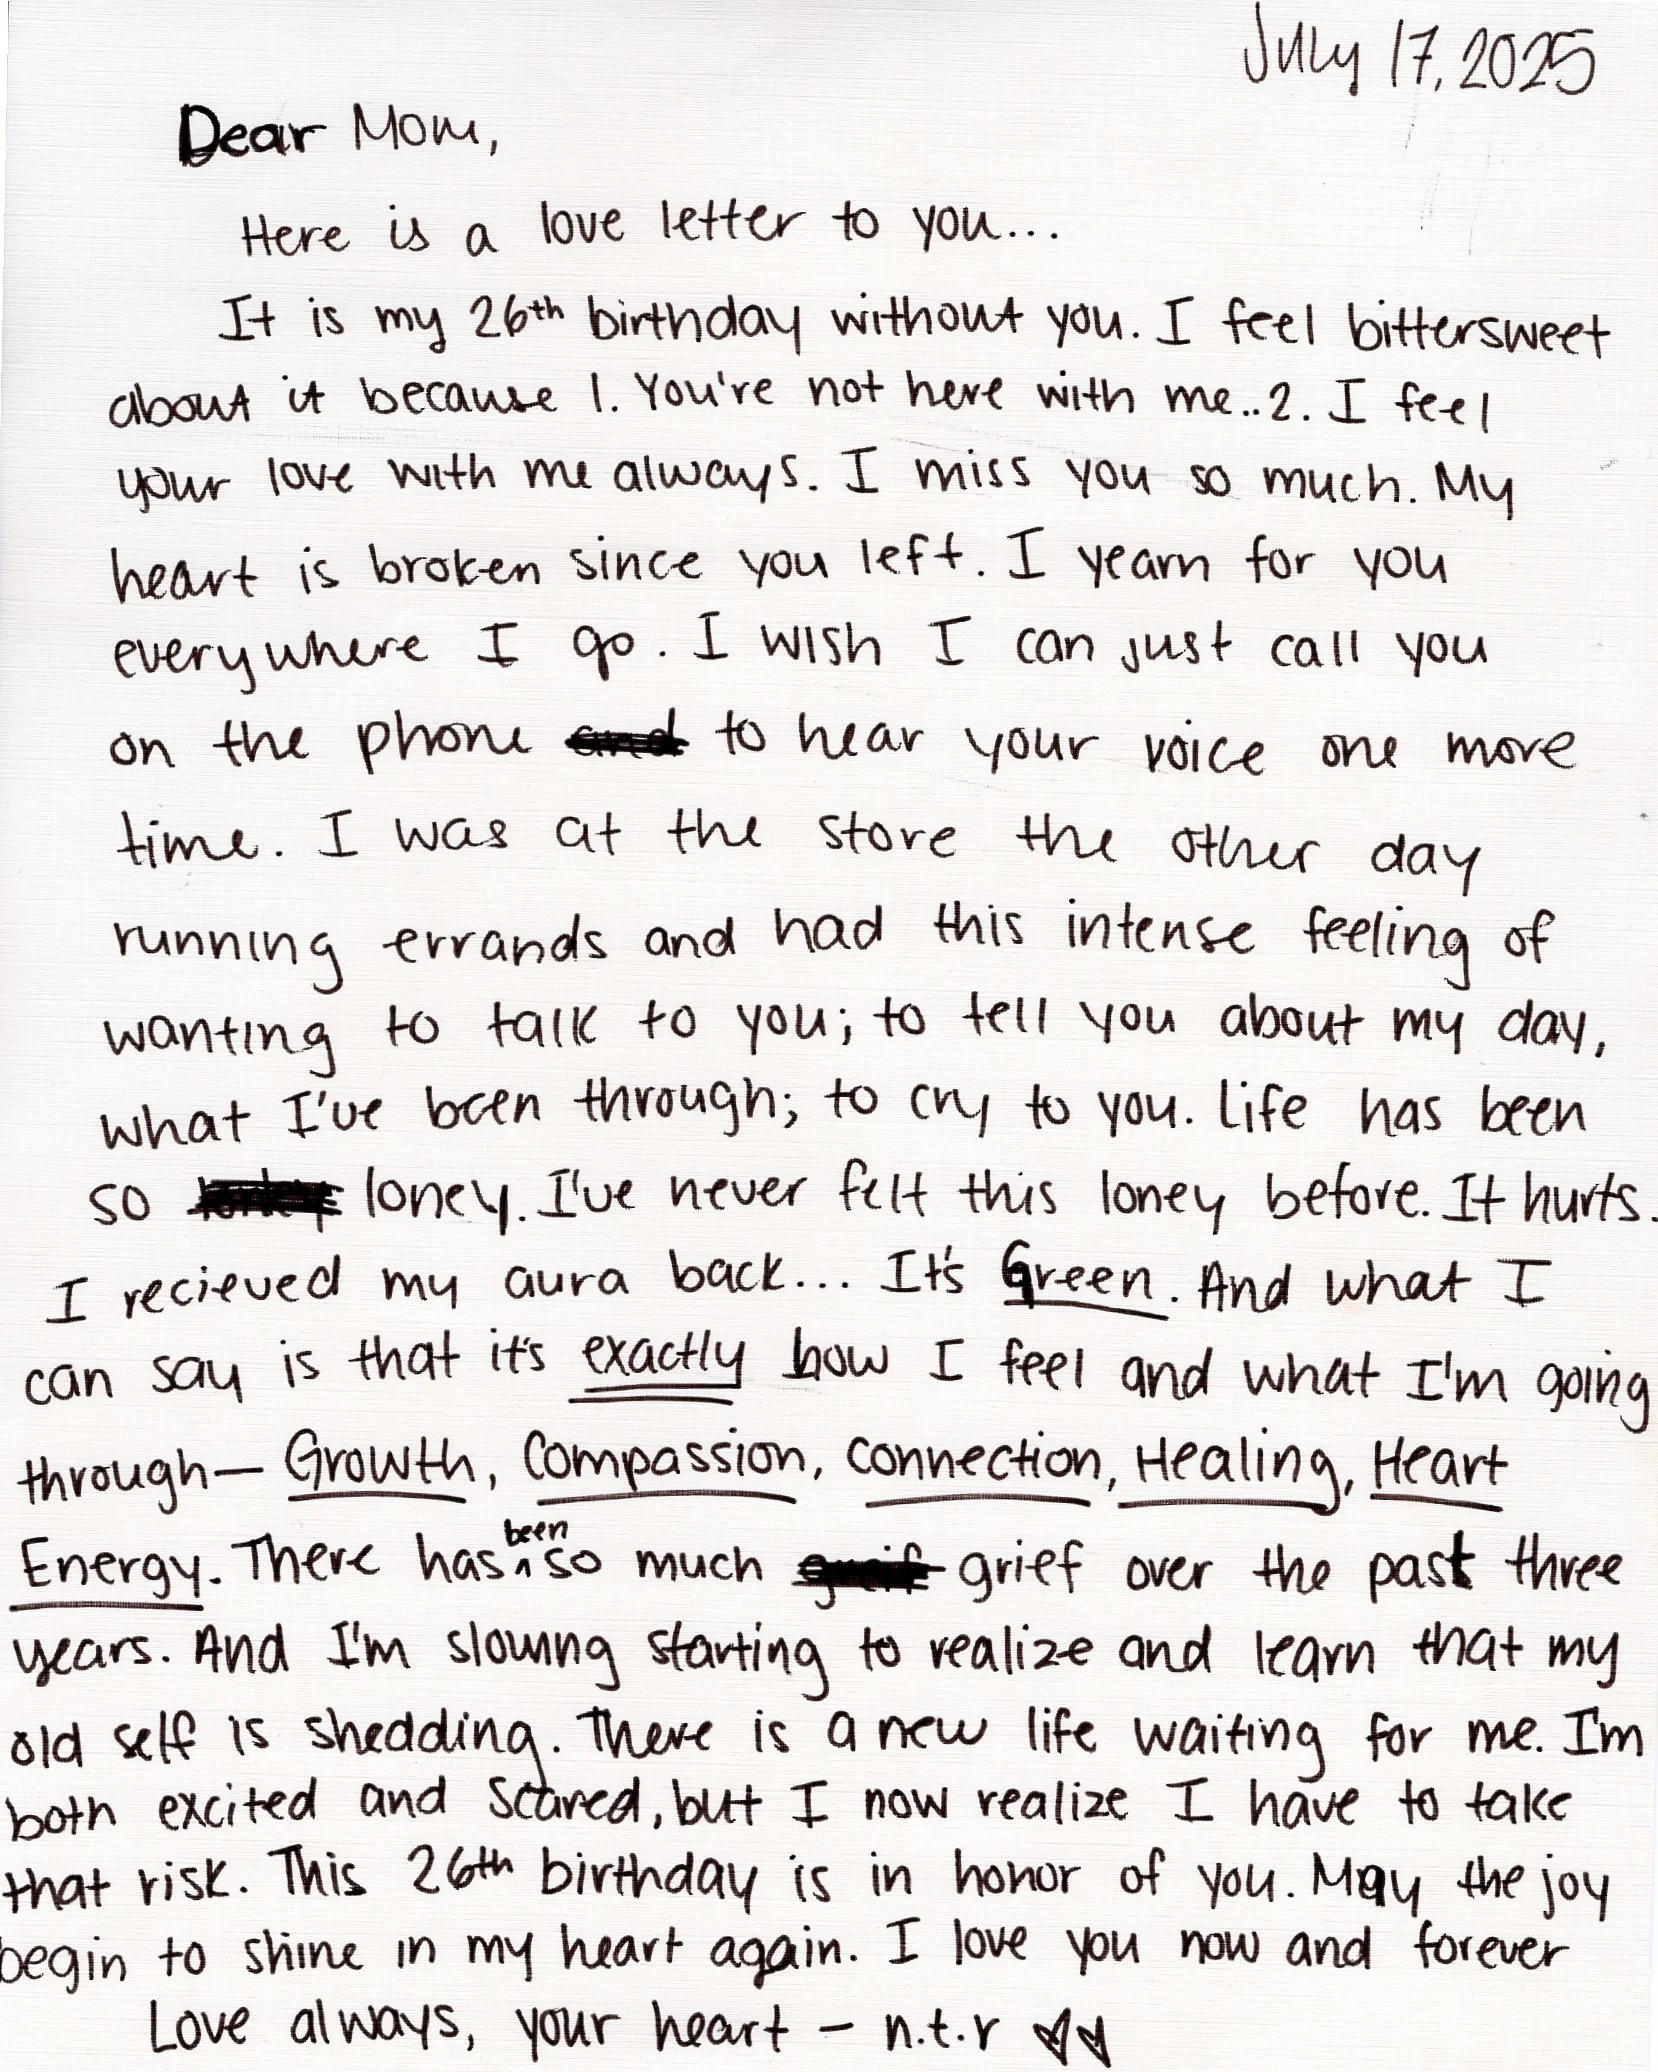 July 17, 2025
Dear Mom,
Here is a love letter to you...
It is my 26th birthday without you. I feel bittersweet
about it because 1. You're not here with me..2. I feel
your love with me always. I miss you so much. My
heart is broken since you left. I yearn for you
everywhere I go. I wish I can just call you
on the phone and to hear your voice one more
time. I was at the store the other day
running errands and had this intense feeling of
wanting to talk to you; to tell you about my day,
what I've been through; to cry to you. Life has been
so loney. I've never felt this loney before. It hurts.
I recieved my aura back... It's Green. And what I
can say is that it's exactly how I feel and what I'm going
through— Growth, Compassion, Connection, Healing, Heart
Energy. There has been so much greif grief over the past three
years. And I'm slowing starting to realize and learn that my
old self is shedding. There is a new life waiting for me. I'm
both excited and scared, but I now realize I have to take
that risk. This 26th birthday is in honor of you. May the joy
begin to shine in my heart again. I love you now and forever
Love always, your heart — n.t.r ♡♡